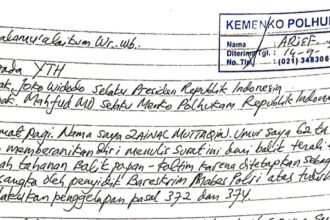 KEMENKO POLHU
Nama : ARIEF
Diterima Tgl. : 14-9-
No. Tlp. : (021) 348306
alamu'alaikum Wr. wb.
ada YTH
ak. Joko Widodo selaku Presiden Republik Indonesia
ak. Mahfud MD selaku Menko Polhukam Republik Indones
mat pagi. Nama saya ZAINAL MUTTAQIN. Umur saya 62 ta
memberanikan diri menulis surat ini dari balik terali
ah tahanan Balikpapan - Kaltim karena ditetapkan sebag
angka oleh penyidik Bareskrim Mabes Polri atas tuduh
lakukan penggelapan pasal 372 dan 374.